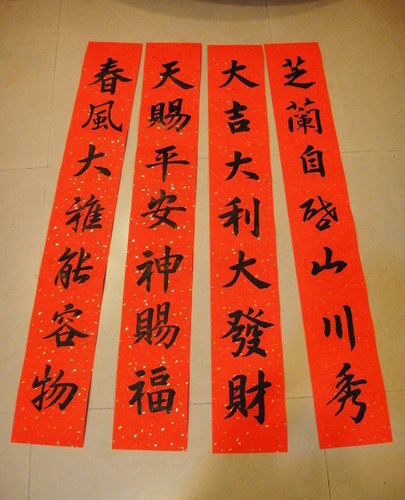 芝蘭自啓山川秀
大吉大利大發財
天賜平安神賜福
春風大雅能容物